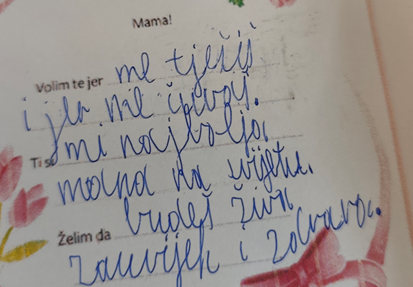 Mama!
Volim te jer me tješiš
i jer me čuvaš.
Ti si mi najbolja
mama na svijetu.
Želim da budeš živa
zauvijek i zdrava.